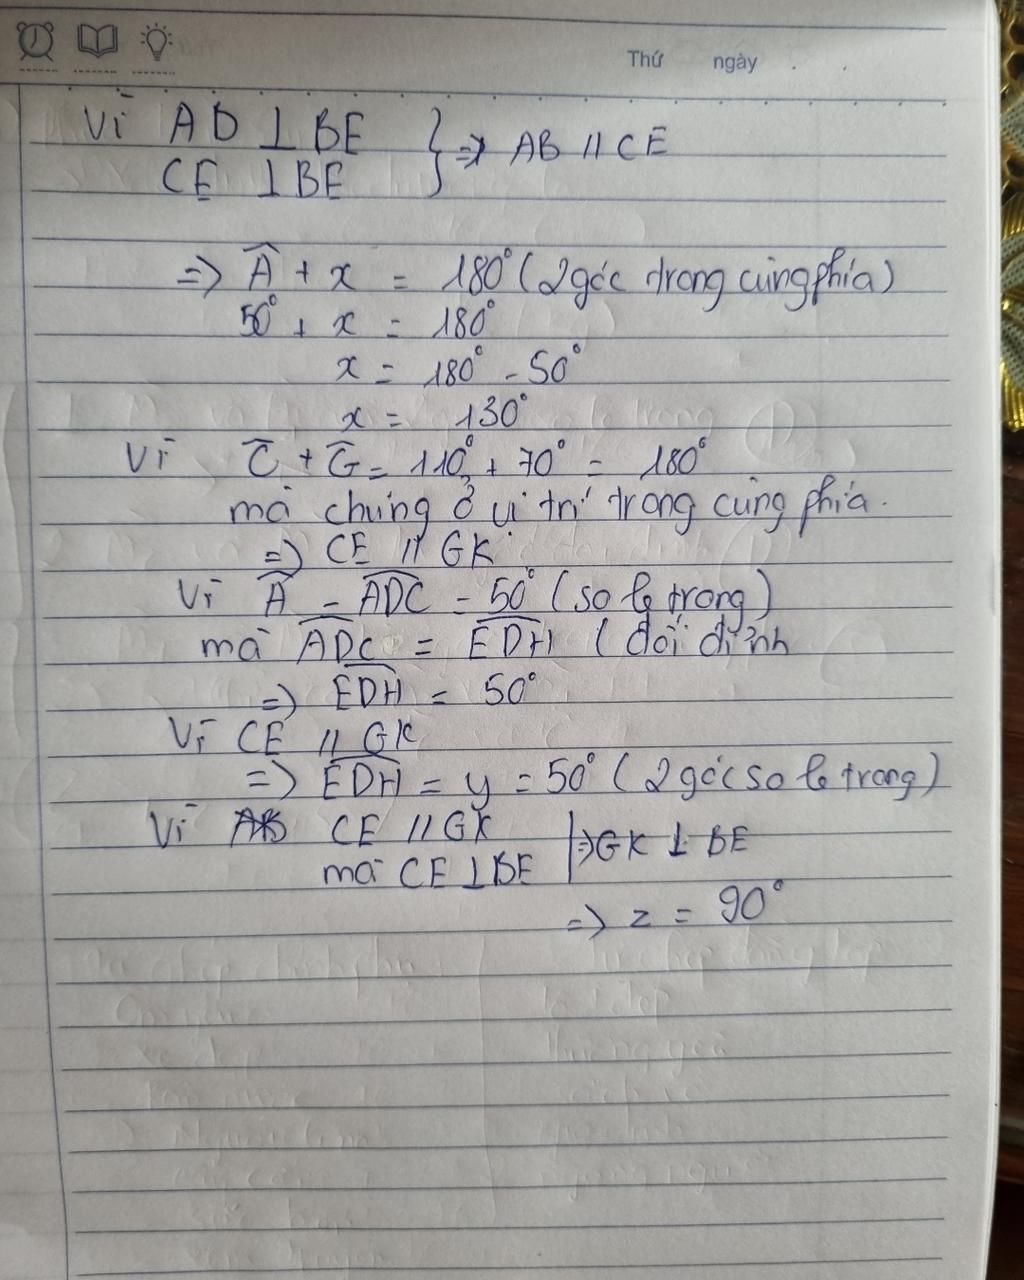 Thứ ngày
Vì AD ⊥ BE } => AB // CE
CE ⊥ BE
=> Â + x = 180° (2 góc trong cùng phía)
50° + x = 180°
x = 180° - 50°
x = 130°
Vì C̄ + Ḡ = 110° + 70° = 180°
mà chúng ở vị trí trong cùng phía.
=> CE // GK
Vì Â = ADC = 50° (so le trong)
mà ADC = EDH (đối đỉnh
=> EDH = 50°
Vì CE // GK
=> EDH = y = 50° (2 góc so le trong)
Vì CE // GK | => GK ⊥ BE
mà CE ⊥ BE
=> z = 90°